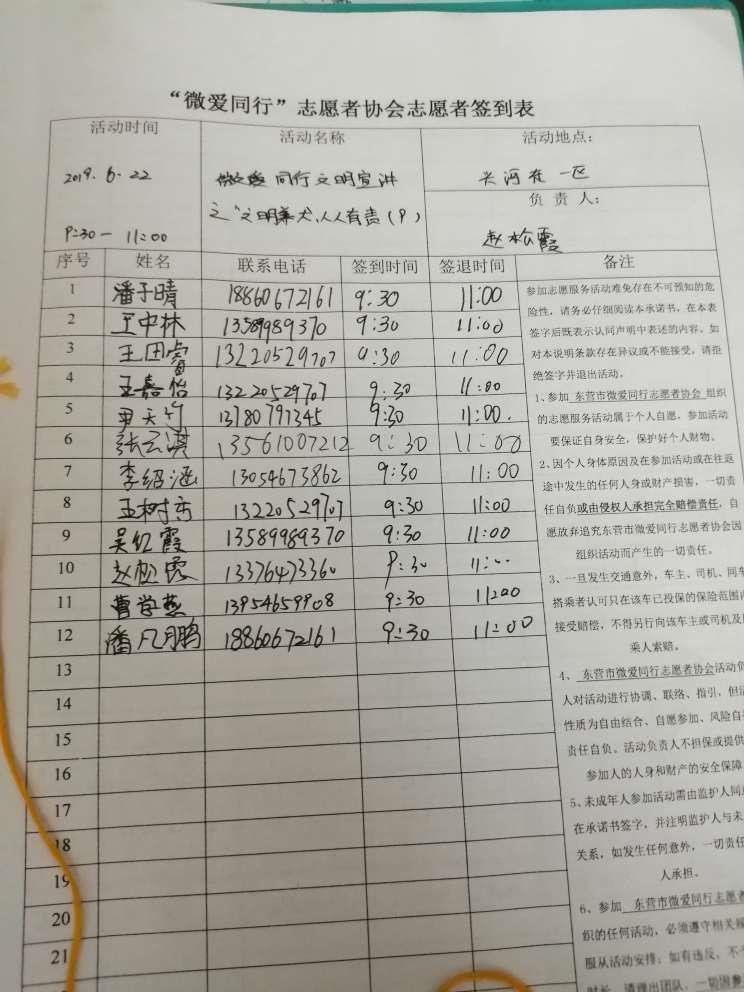 “微爱同行”志愿者协会志愿者签到表
活动时间 活动名称 活动地点：
2019.6.22 微爱同行文明宣讲 兴河花一区
之“文明养犬,人人有责（9） 负责人：
9:30—11:00 赵松霞
序号 姓名 联系电话 签到时间 签退时间 备注
1 潘子晴 18860672161 9:30 11:00
2 王中林 13589989370 9:30 11:00
3 王田睿 13220529707 9:30 11:00
4 王嘉怡 13220529707 9:30 11:00
5 尹天竹 13780797345 9:30 11:00.
6 张云淇 13561007212 9:30 11:00
7 李绍涵 13054673862 9:30 11:00
8 王树市 13220529707 9:30 11:00
9 吴红霞 13589989370 9:30 11:00
10 赵松霞 13376473360 9:30 11:00
11 曹学燕 13954659908 9:30 11:00
12 潘凡鹏 18860672161 9:30 11:00
13
14
15
16
17
18
19
20
21
参加志愿服务活动难免存在不可预知的危
险性，请务必仔细阅读本承诺书，在本表
签字后既表示认同声明中表述的内容。如
对本说明条款存在异议或不能接受，请拒
绝签字并退出活动。
1、参加 东营市微爱同行志愿者协会 组织
的志愿服务活动属于个人自愿，参加活动
要保证自身安全，保护好个人财物。
2、因个人身体原因及在参加活动或在往返
途中发生的任何人身或财产损害，一切责
任自负或由侵权人承担完全赔偿责任，自
愿放弃追究东营市微爱同行志愿者协会因
组织活动而产生的一切责任。
3、一旦发生交通意外，车主、司机、同车
搭乘者认可只在该车已投保的保险范围内
接受赔偿，不得另行向该车主或司机及
乘人索赔。
4、 东营市微爱同行志愿者协会活动负
人对活动进行协调、联络、指引，但活
性质为自由结合、自愿参加、风险自
责任自负。活动负责人不担保或提供
参加人的人身和财产的安全保障
5、未成年人参加活动需由监护人同
在承诺书签字，并注明监护人与未
关系，如发生任何意外，一切责任
人承担。
6、参加 东营市微爱同行志愿者
织的任何活动，必须遵守相关规
服从活动安排；如有违反，不
时长，清理出团队，一切因